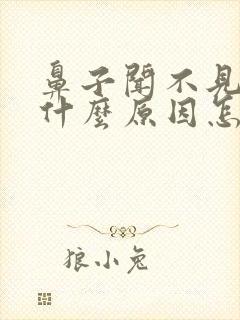 鼻子聞不見
什麼原因怎
狼小兔